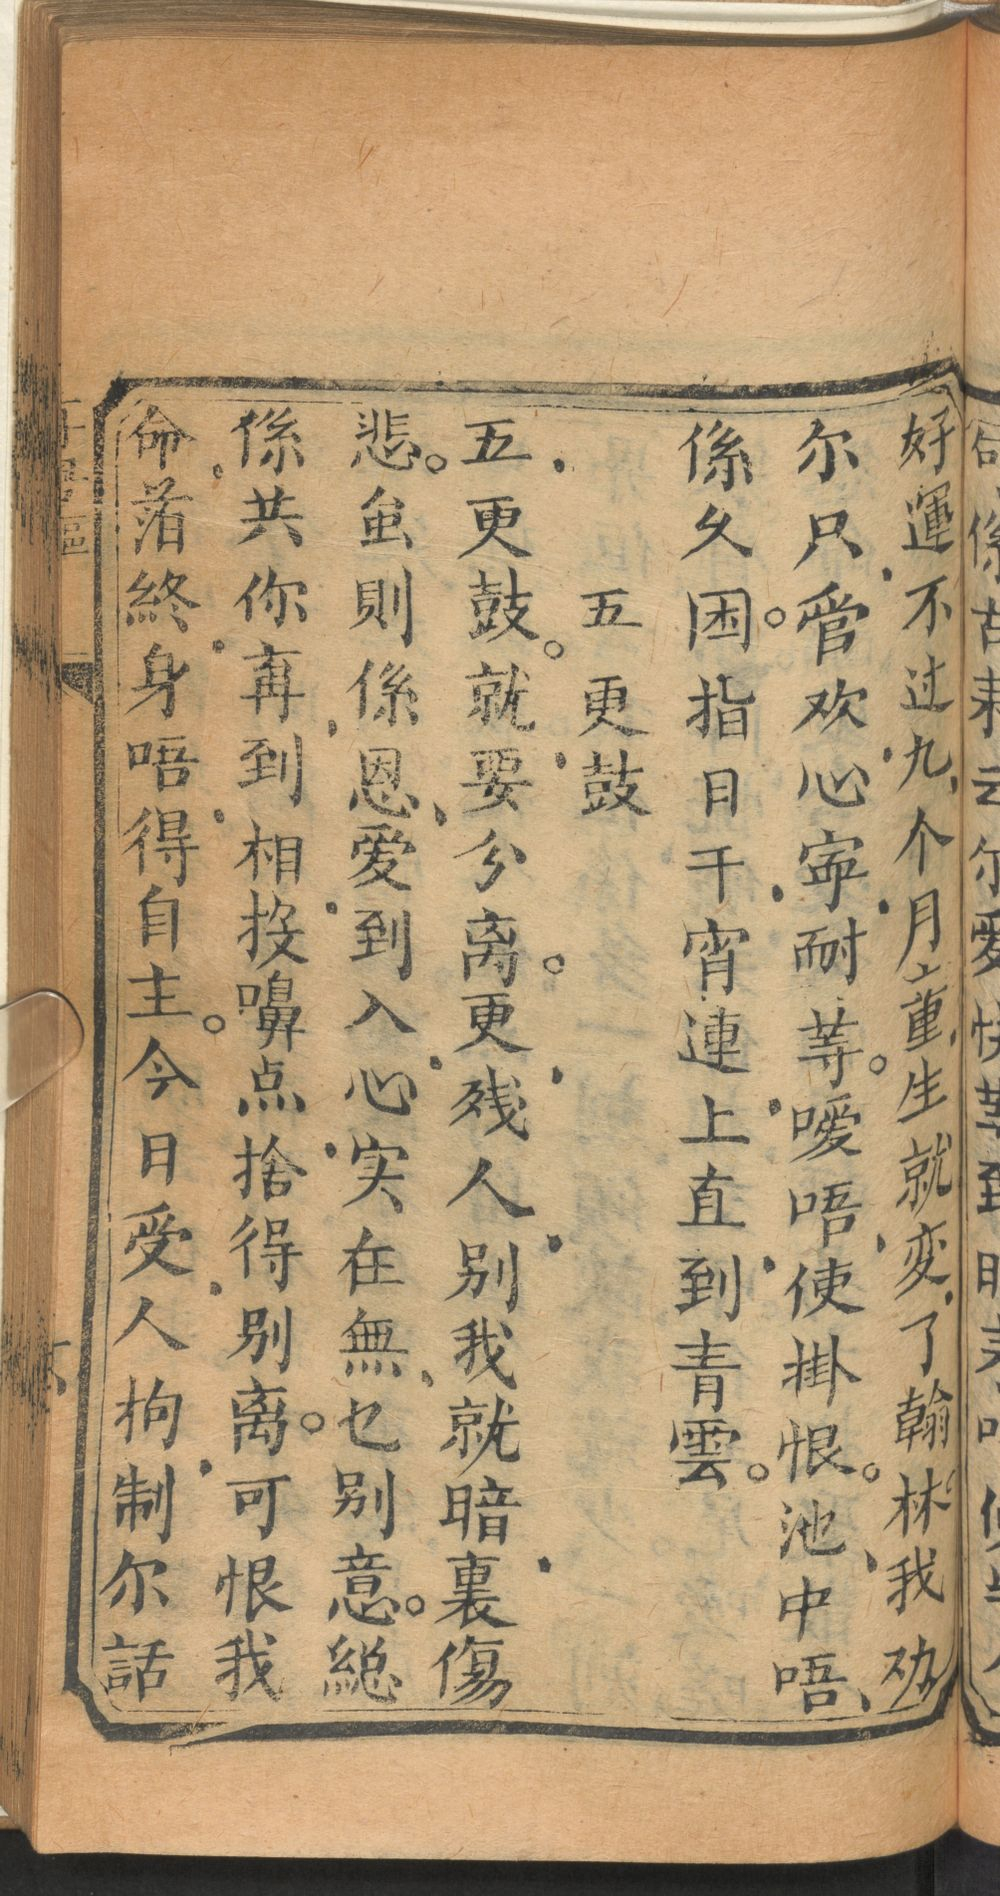 好運不过九个月童生就变了翰林我劝
尔只管欢心寧耐等。噯唔使掛恨。池中唔
係久困。指日干宵連上直到青雲。
五更鼓
五更鼓。就要分离。更残人别我就暗裏傷
悲。虽则係恩爱到入心实在無乜别意。総
係共你再到相投嗅点捨得别离。可恨我
命落終身唔得自主。今日受人拘制尔話